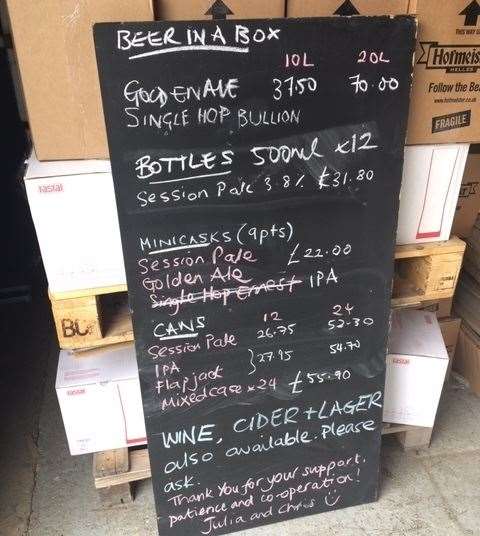 BEER IN A BOX
10L 20L
GOLDEN ALE 37.50 70.00
SINGLE HOP BULLION
BOTTLES 500ml x12
Session Pale 3.8% £31.80
MINICASKS (9pts)
Session Pale £22.00
Golden Ale
Single Hop Ernest IPA
CANS 12 24
Session Pale 26.75 52.30
IPA } 27.95 54.70
Flapjack
Mixed case x 24 £55.90
WINE, CIDER + LAGER
also available. Please
ask.
Thank you for your support,
patience and co-operation!
Julia and Chris
THIS WAY U
Hofmeis
HELLES
Follow the Be
www.hofmeister.co.uk
FRAGILE